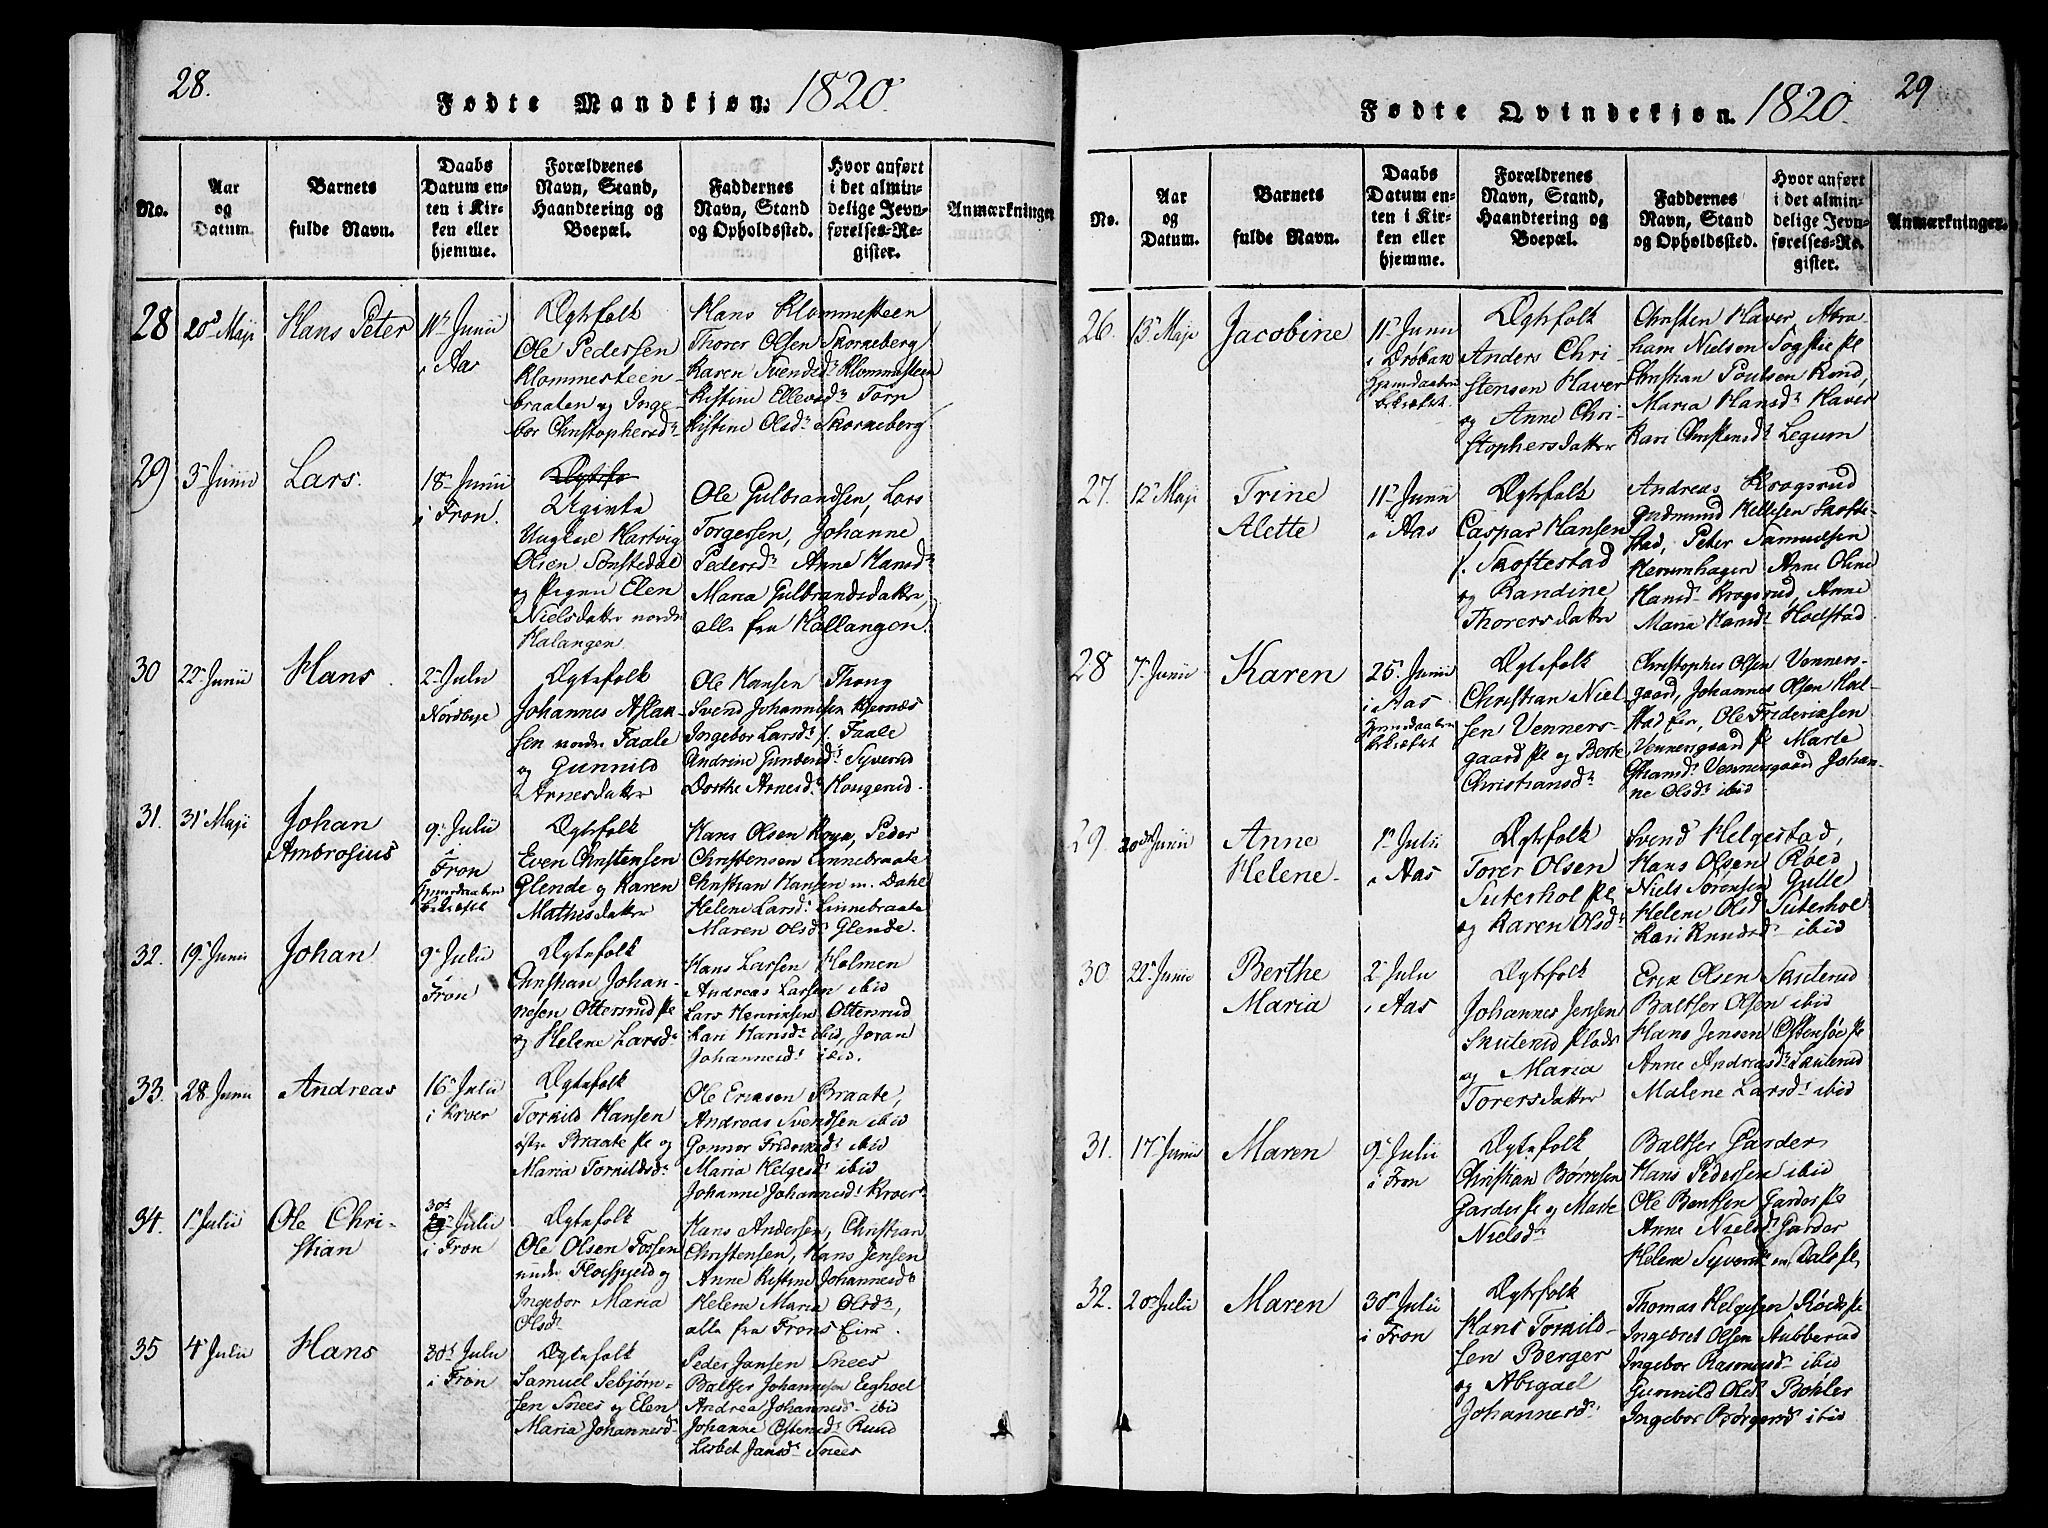 28.
Fødte Mandkjøn: 1820.
No.
Aar
og
Datum.
Barnets
fulde Navn.
Daabs
Datum en-
ten i Kir-
ken eller
hjemme.
Forældrenes
Navn, Stand,
Haandtering og
Boepæl.
Faddernes
Navn, Stand
og Opholdssted.
Hvor anført
i det almin-
delige Jevn-
førelses-Re-
gister.
Anmærkninger
28
20de Maji
Hans Peter
11te Junii
i Aas
Ægtefolk
Ole Pedersen
Klommesteen-
braaten og Inge-
bor Christophersdr
Hans Klommesteen
Thorer Olsen Skorneberg
Karen Svendsdr Klommesteen
Kistine Ellevsdr Torn
Kistine Olsdr Skorneberg
29
3de Junii
Lars.
18de Junii
i Fron.
Ugivte
Ungkarl Hartvig
Olsen Sønstedal
og Pigen Elen
Nielsdatter nordre
Halangen
Ole Gulbrandsen, Lars
Torgersen, Johanne
Pedersdr Anne Hansdr
Maria Gulbrandsdatter,
alle fra Hallangen.
30
22de Junii
Hans
2den Julii
i Nordbye
Ægtefolk
Johannes Aslak-
sen nordre Faale
og Gunnild
Arnesdatter
Ole Hansen Thong
Svend Johannesen Kjernæs
Ingebor Larsdr s. Faale
Andrine Gundersdr Syverud
Dorthe Arnesdr Haugerud.
31.
31te Maji
Johan
Ambrosius
9de Julii
i
Fron
hjemedaaben
bekræftet
Ægtefolk
Even Christensen
Glende og Karen
Mathisdatter
Hans Olsen Krya, Peder
Christensen Linnebraate
Christian Hansen m. Dahl
Helene Larsdr Linnebraate
Maren Olsdr Glende.
32.
19de Junii
Johan
9de Julii
i
Fron
Ægtefolk
Christian Johan-
nesen Ottersrud Pl
og Helene Larsdr
Hans Larsen Holmen
Andreas Larsen ibid
Lars Henriksen Ottersrud
Kari Hansdr ibid, Joran
Johannesdr ibid.
33.
28de Junii
Andreas
16de Julii
i Kroer
Ægtefolk
Torkild Hansen
østre Braate Pl og
Maria Torkildsdr
Ole Eriksen Braate,
Andreas Svendsen ibid
Gonnor Frideriksdr ibid
Maria Helgesdr ibid
Johanne Johannesdr Kroer.
34.
1ste Julii
Ole Chri-
stian
30te
Julii
i Fron
Ægtefolk
Ole Olsen Fossen
under Floespjeld og
Ingebor Maria
Olsdr
Hans Andersen, Christian
Christensen, Hans Jensen
Anne Kistine Johannesdr
Helene Maria Olsdr,
alle fra Frons Eier.
35
4de Julii
Hans
30te Julii
i Fron
Ægtefolk
Samuel Sebjørn-
sen Snees og Elen
Maria Johannesdr
Peder Jansen Snees
Baltser Johannesen Eeghoel
Andrea Johannesdr ibid
Johanne Østensdr Ruud
Lisbet Jansdr Snees
29
Fødte Qvindekjøn. 1820.
No.
Aar
og
Datum.
Barnets
fulde Navn.
Daabs
Datum en-
ten i Kir-
ken eller
hjemme.
Forældrenes
Navn, Stand,
Haandtering og
Boepæl.
Faddernes
Navn, Stand
og Opholdssted.
Hvor anført
i det almin-
delige Jevn-
førelses-Re-
gister.
Anmærkninger.
26.
13de Maji
Jacobine
11te Junii
i Drøbak
hjemedaaben
bekræftet
Ægtefolk
Anders Chri-
stensen Haver
og Anne Chri-
stophersdatter
Christen Haver Abra-
ham Nielsen Togstie Pl
Christian Poulsen Rond,
Maria Hansdr Haver
Kari Christensdr Legum
27.
12te Maji
Trine
Alette
11te Junii
i Aas
Ægtefolk
Caspar Hansen
s. Skoftestad
og Randine
Thorersdatter
Andreas Krogsrud
Gudmund Kellesen Skofte-
stad, Peter Samuelsen
Herumhagen Anne Oline
Hansd. Krogsrud, Anne
Maria Hansdr Holstad
28
7de Junii
Karen
25de Junii
i Aas
hjemedaaben
bekræftet
Ægtefolk
Christian Niel-
sen Venners-
gaard Pl og Berte
Christiansdr
Christopher Olsen Venners-
gaard, Johannes Olsen Hal-
stad eier, Ole Frideriksen
Vennersgaard Pl Marte
Hansdr Vennersgaard Johan-
ne Olsdr ibid
29.
20de Junii
Anne
Helene
1ste Julii
i Aas
Ægtefolk
Torer Olsen
Suterhol Pl
og Karen Olsdr
Svend Helgestad,
Hans Olsen Røed
Niels Sørensen Gulle
Helene Olsd. Suterhol
Kari Knudsd. ibid
30
22de Junii
Berthe
Maria
2den Julii
i Aas
Ægtefolk
Johannes Jensen
Skuterud Plads
og Maria
Torersdatter
Erik Olsen Skuterud
Baltser Olsen ibid
Hans Jensen Østensøe Pl
Anne Andreasdr Skuterud
Malene Larsdr ibid
31.
17de Junii
Maren
9de Julii
i Fron
Ægtefolk
Christian Børresen
Garder Pl og Marte
Nielsdr
Baltser Garder
Hans Pedersen ibid
Ole Bentsen Garder Pl
Anne Nielsdr Garder
Helena Syversdr m. Dals Pl.
32.
20de Julii
Maren
30te Julii
i Fron
Ægtefolk
Hans Torkild-
sen Berger
og Abigael
Johannesdr
Thomas Helgesen Røeds Pl
Ingebret Olsen Stubberud
Ingebor Rasmusdr ibid
Gunnild Olsdr Bohler
Ingebor Børgersdr ibid